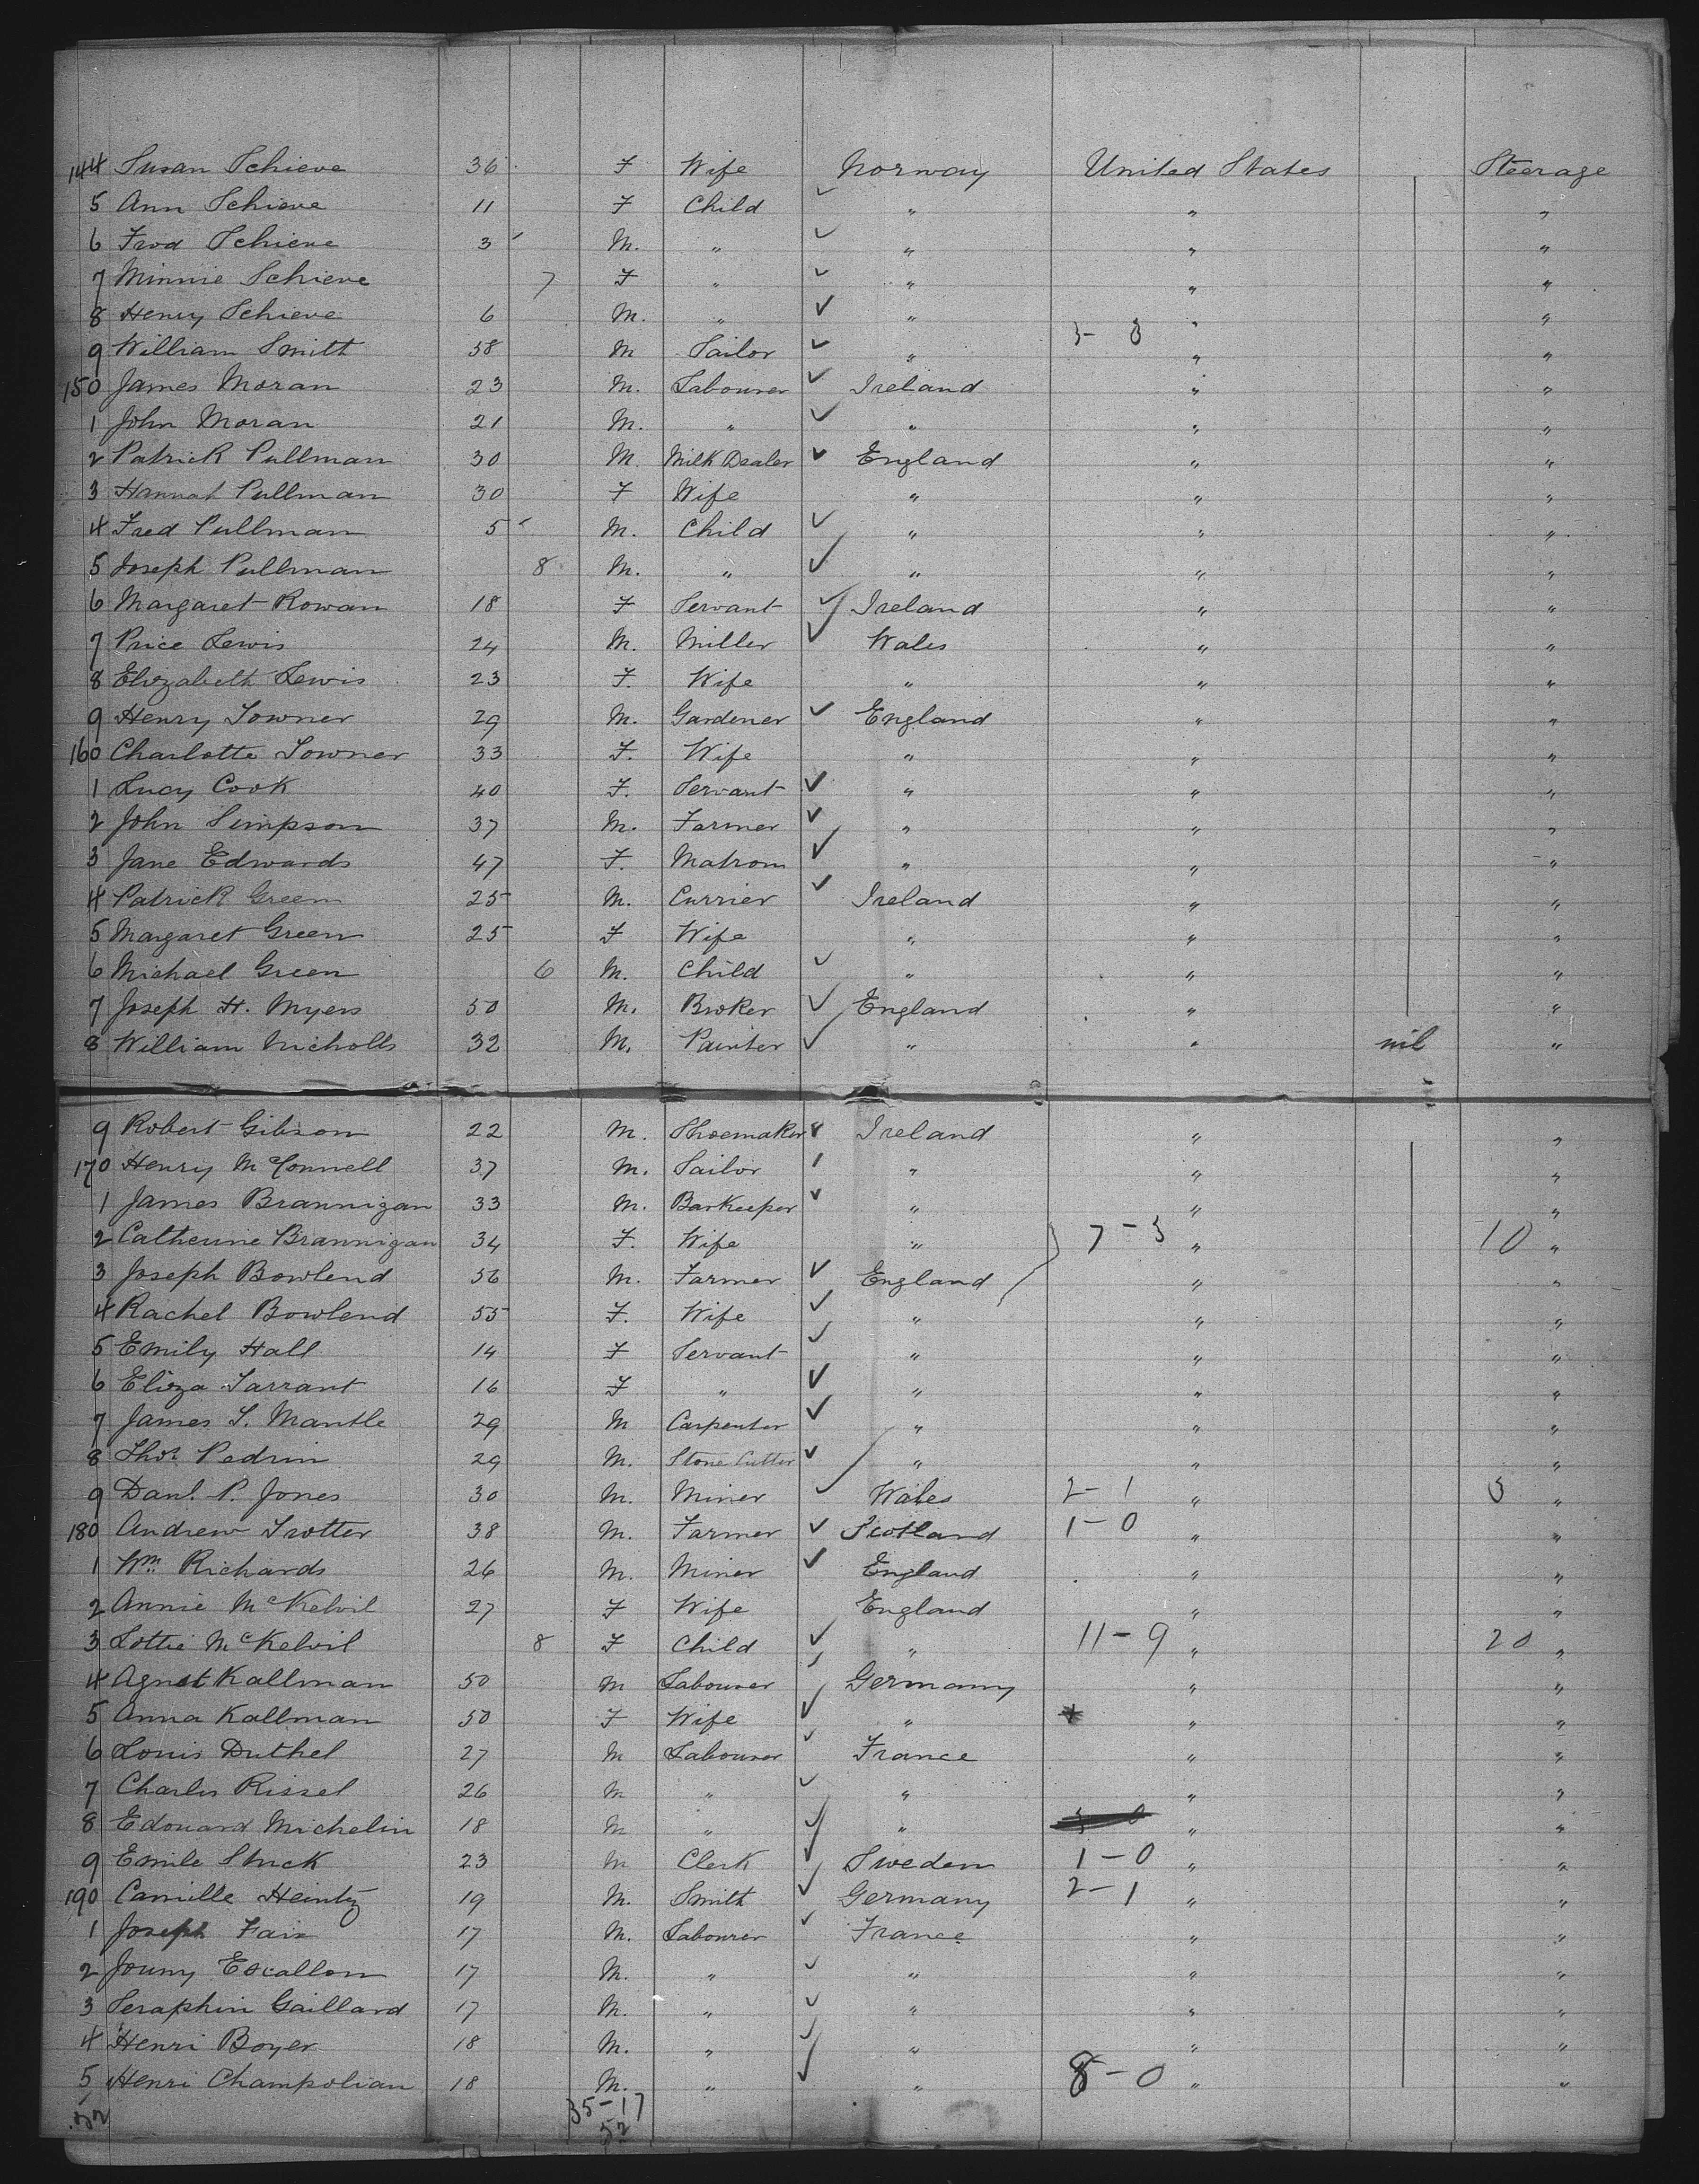 144 Susan Schieve 36 F Wife Norway United States Steerage
5 Ann Schieve 11 F Child " " "
6 Fred Schieve 3 M. " " " "
7 Minnie Schieve 7 F " " " "
8 Henry Schieve 6 M. " " " "
9 William Smith 58 M Sailor " " "
150 James Moran 23 M. Labourer Ireland " "
1 John Moran 21 M. " " " "
2 Patrick Pullman 30 M. Milk Dealer England " "
3 Hannah Pullman 30 F Wife " " "
4 Fred Pullman 5 M. Child " " "
5 Joseph Pullman 8 M. " " " "
6 Margaret Rowan 18 F Servant Ireland " "
7 Price Lewis 24 M. Miller Wales " "
8 Elizabeth Lewis 23 F. Wife " " "
9 Henry Towner 29 M. Gardener England " "
160 Charlotte Towner 33 F. Wife " " "
1 Lucy Cook 40 F. Servant " " "
2 John Simpson 37 M. Farmer " " "
3 Jane Edwards 47 F. Matron " " "
4 Patrick Green 25 M. Currier Ireland " "
5 Margaret Green 25 F Wife " " "
6 Michael Green 6 M. Child " " "
7 Joseph H. Myers 50 M. Broker England " "
8 William Nicholls 32 M. Painter " " nil "
9 Robert Gibson 22 M. Shoemaker Ireland " "
170 Henry McConnell 37 M. Sailor " " "
1 James Brannigan 33 M. Barkeeper " " "
2 Catherine Brannigan 34 F. Wife " 7-3 " 10 "
3 Joseph Bowlend 56 M. Farmer England " "
4 Rachel Bowlend 55 F. Wife " " "
5 Emily Hall 14 F Servant " " "
6 Eliza Tarrant 16 F " " " "
7 James T. Mantle 29 M Carpenter " " "
8 Thos. Pedrin 29 M. Stone Cutter " " "
9 Danl. P. Jones 30 M. Miner Wales 2-1 " 3 "
180 Andrew Trotter 38 M. Farmer Scotland 1-0 " "
1 Wm. Richards 26 M. Miner England " "
2 Annie McKelvil 27 F Wife England " "
3 Lottie McKelvil 8 F Child " 11-9 " 20 "
4 Kallman 50 M Labourer Germany " "
5 Anna Kallman 50 F Wife " * " "
6 Louis Duthel 27 M Labourer France " "
7 Charles Rissel 26 M " " " "
8 Edouard Michelin 18 M " " " "
9 Emile Stuck 23 M Clerk Sweden 1-0 " "
190 Camille Heintz 19 M. Smith Germany 2-1 " "
1 Joseph Faix 17 M. Labourer France " "
2 Jouny Escallon 17 M. " " " "
3 Seraphin Gaillard 17 M. " " " "
4 Henri Boyer 18 M. " " " "
5 Henri Champolian 18 M. " " 8-0 " "
52 35-17
52